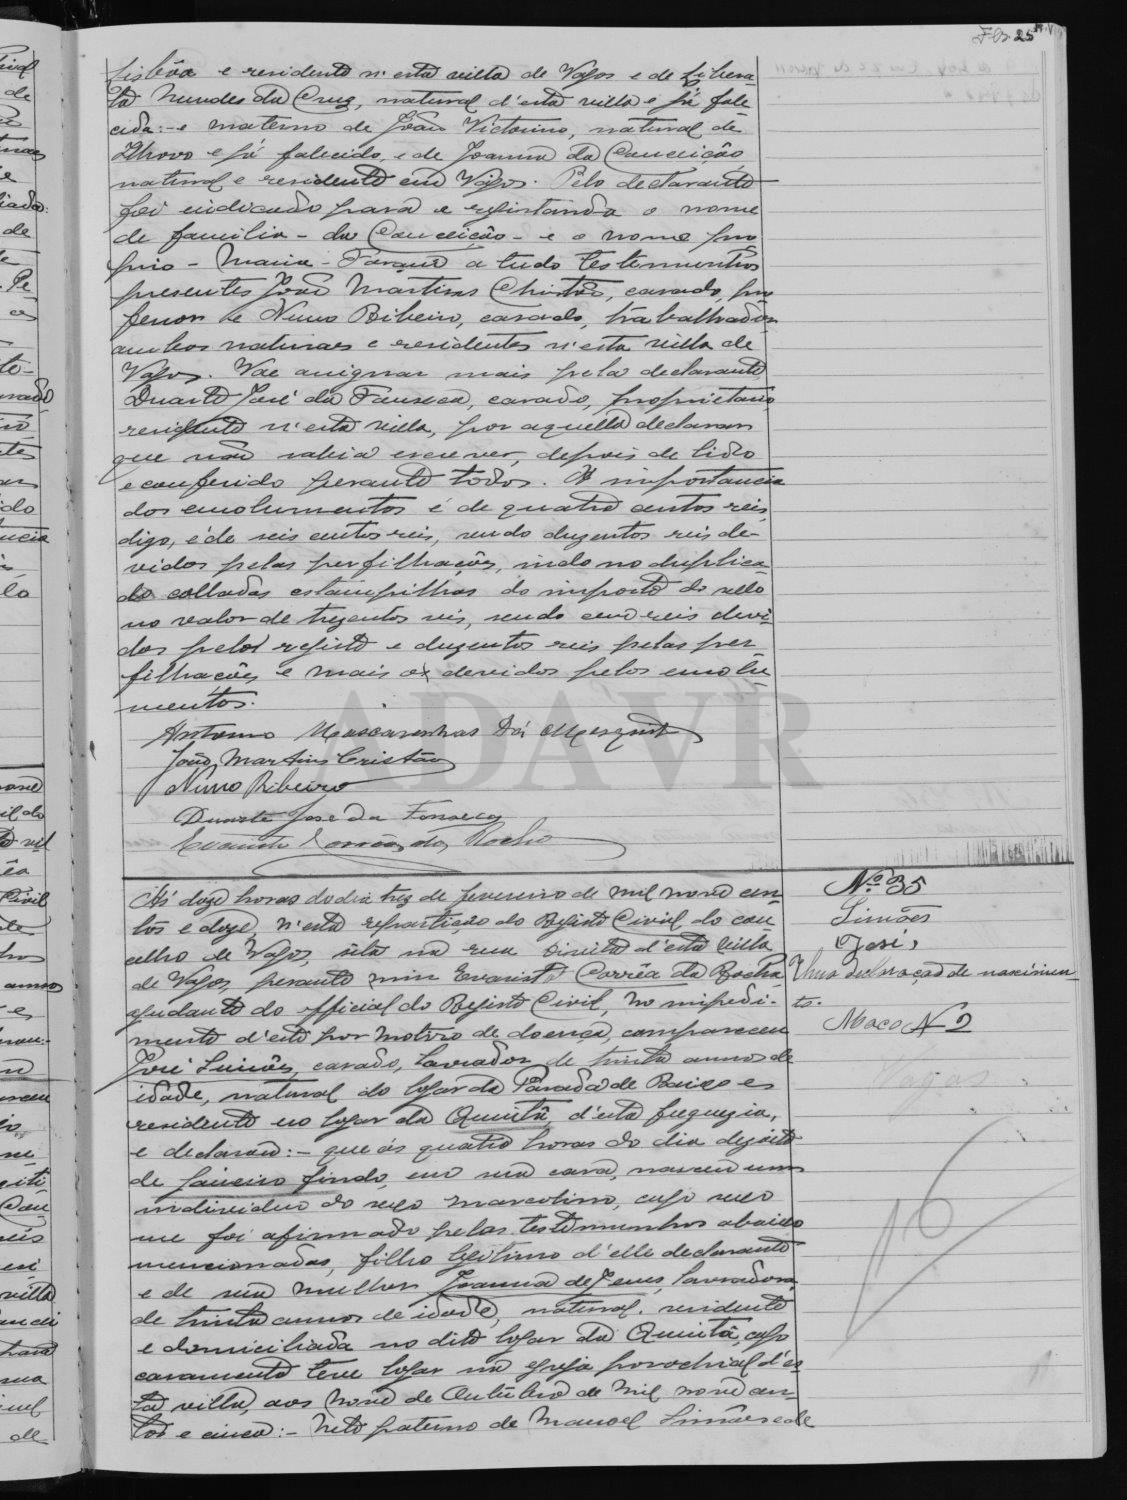 Fls. 25
Lisbôa e residente n'esta villa de Vagos e de Libera-
ta Nunes da Cruz, natural d'esta villa e já fale-
cida:- e materno de João Victorino, natural de
Ilhavo e já falecido, e de Joanna da Conceição,
natural e residente em Vagos. Pelo declarante
foi indicado para a registanda o nome
de familia - da Conceição - e o nome pro-
prio - Maria - Foram a tudo testemunhas
presentes João Martins Christão, casado, pro-
fessor e Nuno Ribeiro, casado, trabalhador
ambos naturaes e residentes n'esta villa de
Vagos. Vae assignar mais pela declarante
Duarte José da Fonseca, casado, proprietario,
residente n'esta villa, por aquella declarar
que não sabia escrever, depois de lido
e conferido perante todos. A importancia
dos emolumentos é de quatro centos reis,
digo, é de seis centos reis, sendo duzentos reis de-
vidos pelas perfilhações, indo no duplica-
do colladas estampilhas do importe do sello
no valor de trezentos reis, sendo cem reis devi-
dos pelo registo e duzentos reis pelas per-
filhações e mais os devidos pelos emolu-
mentos.
Antonio Mascarenhas de Mesquita
João Martins Cristão
Nuno Ribeiro
Duarte José da Fonseca
Evaristo Corrêa da Rocha
ADAVR
Nº 35
Simões
José,
Uma declaração de nascimen-
to.
Maço Nº 2
Vagos
Ás doze horas do dia trez de fevereiro de mil nove cen-
tos e doze, n'esta repartição do Registo Civil do con-
celho de Vagos, sita na rua Direita d'esta villa
de Vagos, perante mim Evaristo Corrêa da Rocha
ajudante do official do Registo Civil, no impedi-
mento d'este por motivo de doença, compareceu
José Simões, casado, lavrador de trinta annos de
idade, natural do logar da Parada de Baixo e
residente no logar da Quintã, d'esta freguezia,
e declarou:- que ás quatro horas do dia dezoito
de janeiro findo, em sua casa, nasceu um
individuo do sexo masculino, cujo sexo
me foi afirmado pelas testemunhas abaixo
mencionadas, filho legitimo d'elle declarante
e de sua mulher Joanna de Jesus, lavradora,
de trinta annos de idade, natural, residente
e domiciliada no dito logar da Quintã, cujo
casamento teve logar na egreja parochial d'es-
ta villa, aos nove de Outubro de mil nove cen-
tos e cinco:- Neto paterno de Manoel Simões e de